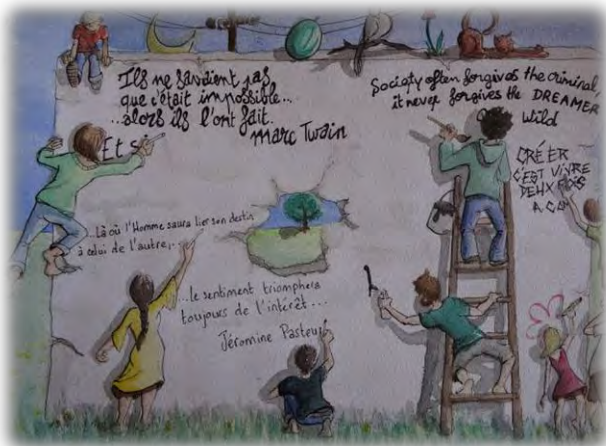 Ils ne savaient pas
que c'était impossible...
...alors ils l'ont fait.
Marc Twain
Et si
Society often forgives the criminal,
it never forgives the DREAMER
Wild
CRÉER
C'EST VIVRE
DEUX FOIS
...là où l'Homme saura lier son destin
à celui de l'autre,...
...le sentiment triomphera
toujours de l'intérêt...
Jéromine Pasteur